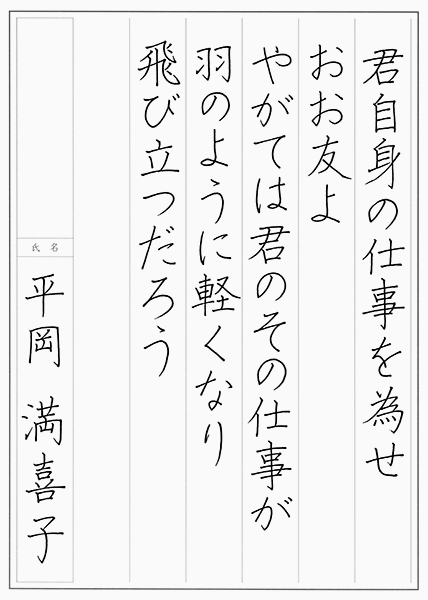 君自身の仕事を為せ
おお友よ
やがては君のその仕事が
羽のように軽くなり
飛び立つだろう
氏名
平岡 満喜子